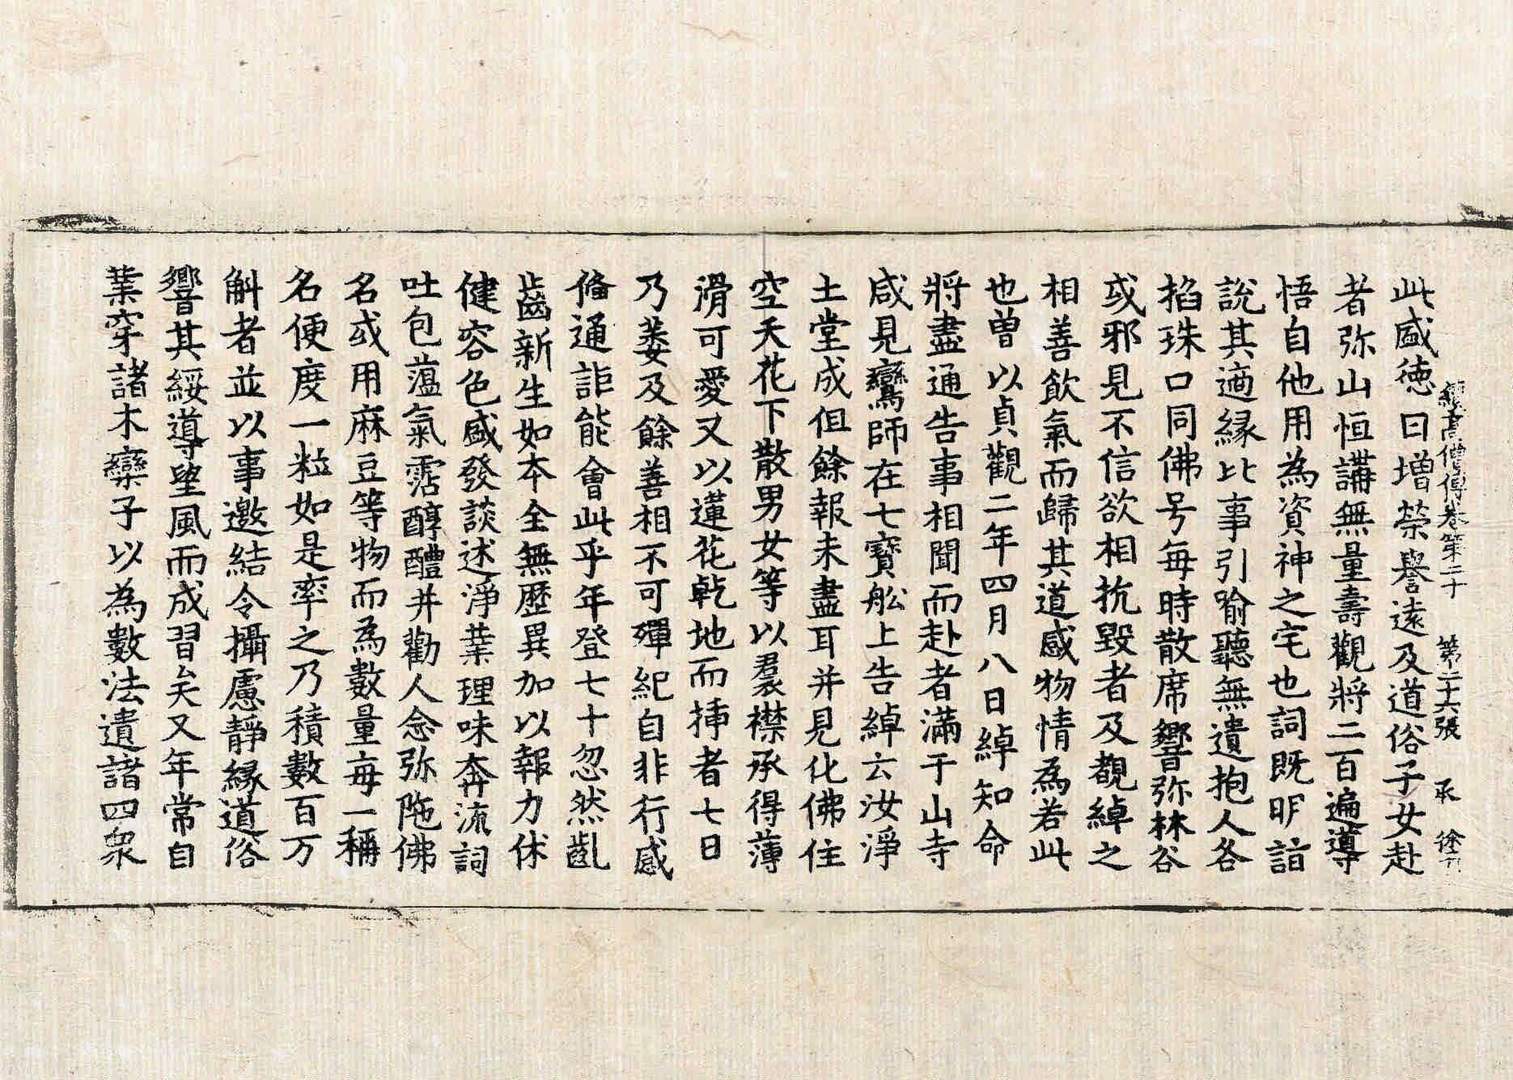 續高僧傳卷第二十　第二十六張　承　徐
此盛徳日増榮譽遠及道俗子女赴
者弥山恒講無量壽觀將二百遍導
悟自他用為資神之宅也詞既明詣
說其適縁比事引喻聽無遺抱人各
掐珠口同佛号每時散席響弥林谷
或邪見不信欲相抗毀者及覩綽之
相善飲氣而歸其道感物情為若此
也曽以貞觀二年四月八日綽知命
將盡通告事相聞而赴者滿于山寺
咸見鸞師在七寶舩上告綽云汝淨
土堂成但餘報未盡耳并見化佛住
空天花下散男女等以裠襟承得薄
滑可愛又以蓮花乾地而揷者七日
乃萎及餘善相不可殫紀自非行感
俻通詎能會此乎年登七十忽然齓
齒新生如本全無歷異加以報力休
健容色盛發談述淨業理味奔流詞
吐包蘊氣霑醇醴并勸人念弥陁佛
名或用麻豆等物而為數量每一稱
名便度一粒如是率之乃積數百万
斛者並以事邀結令攝慮靜縁道俗
響其綏導望風而成習矣又年常自
業穿諸木欒子以為數法遺諸四衆